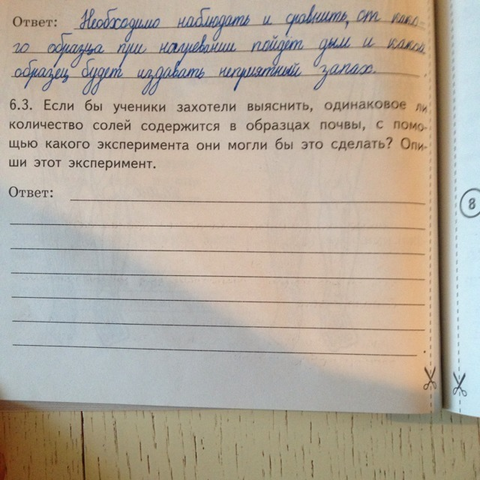 Ответ: Необходимо наблюдать и сравнить, от како-
го образца при нагревании пойдет дым и какой
образец будет издавать неприятный запах.
6.3. Если бы ученики захотели выяснить, одинаковое ли
количество солей содержится в образцах почвы, с помо-
щью какого эксперимента они могли бы это сделать? Опи-
ши этот эксперимент.
Ответ:
8